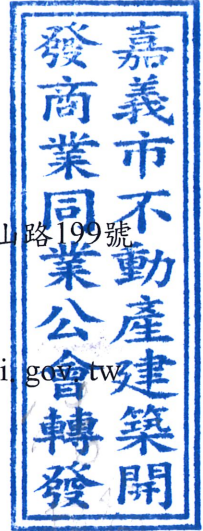 嘉義市不動產建築開
發商業同業公會轉發
山路199號
i.gov.tw